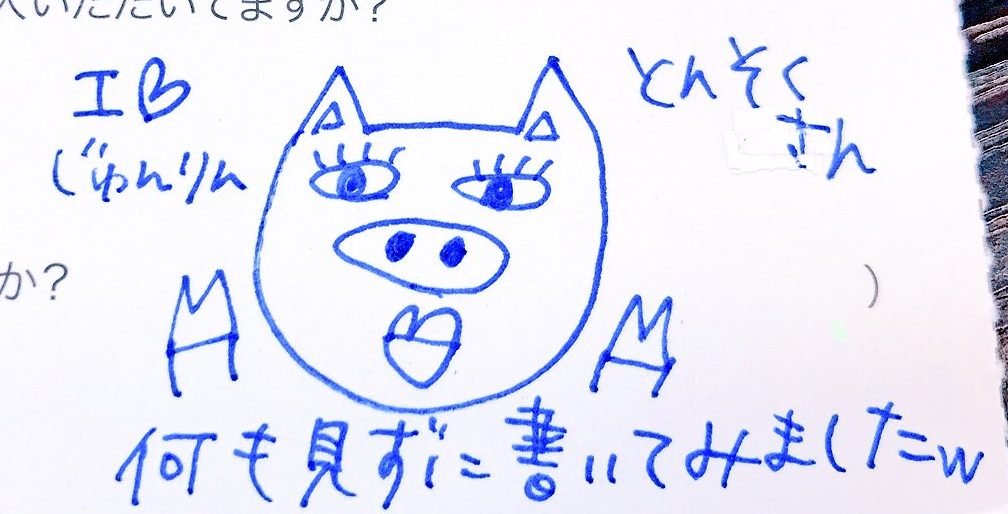 人いただいてますか?
IB
じゅんりん
とんそく
さん
か?
)
何も見ずに書いてみましたw